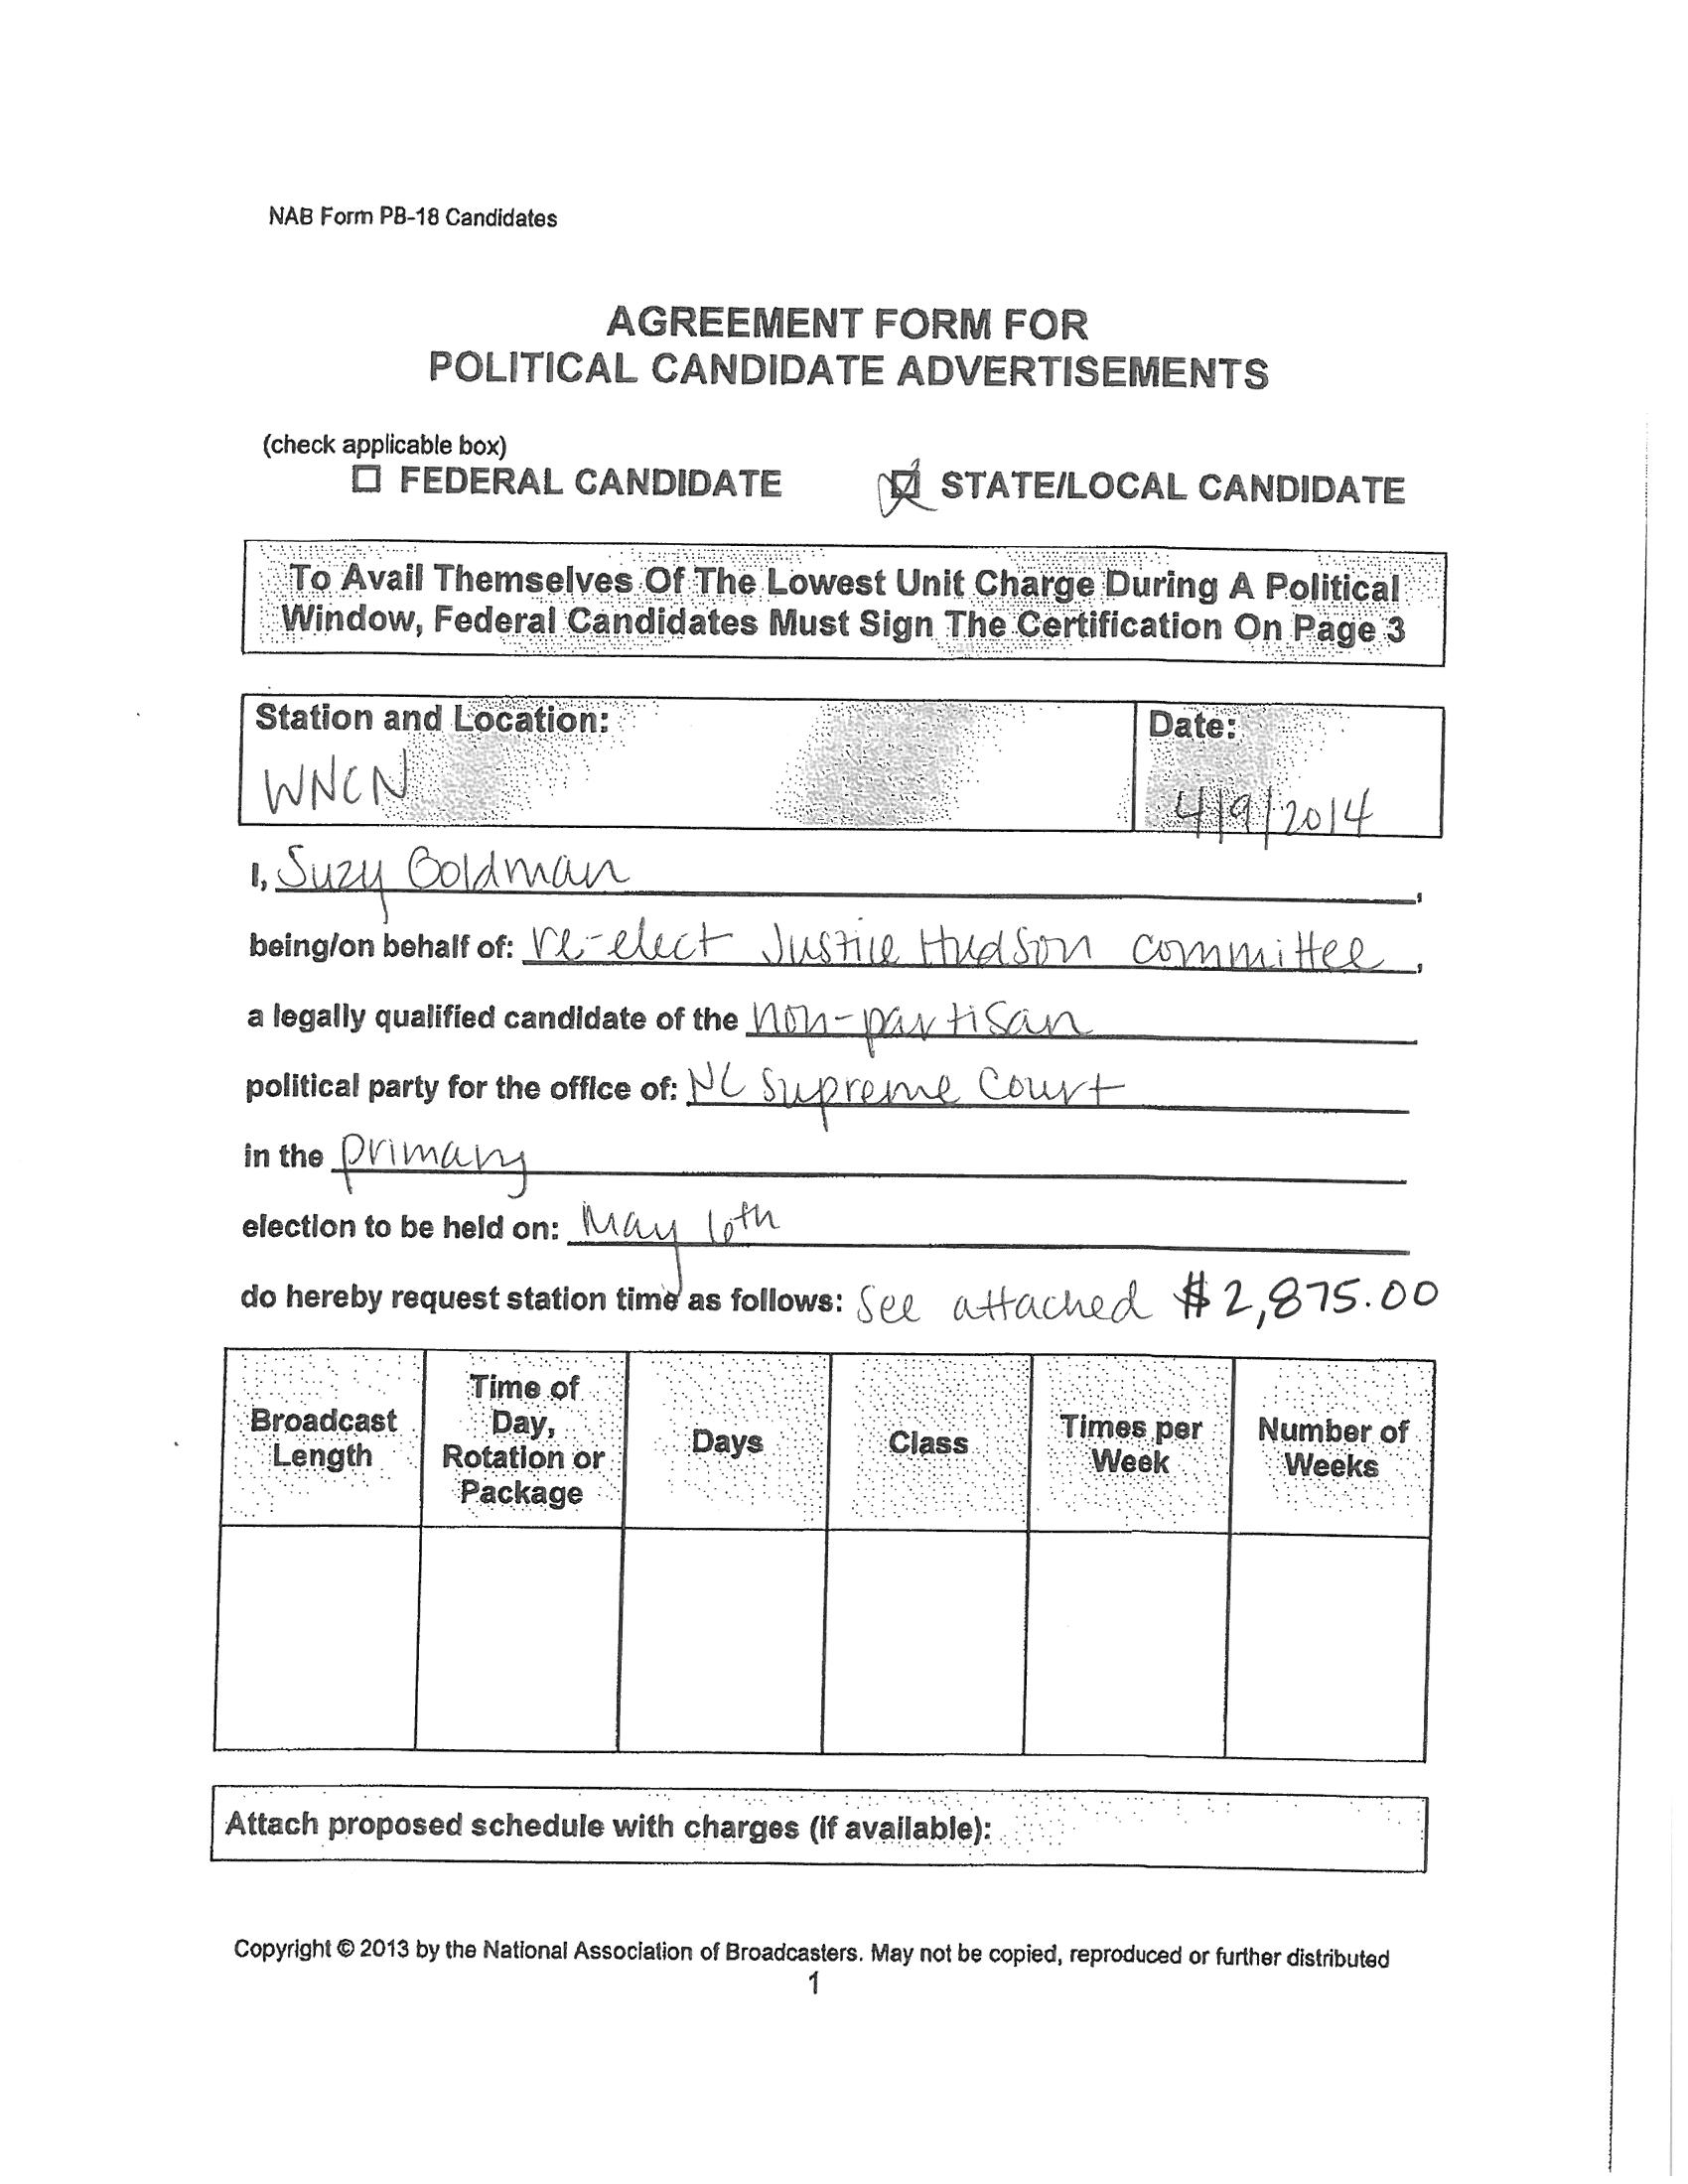 NAB Form PB-18 Candidates
AGREEMENT FORM FOR
POLITICAL CANDIDATE ADVERTISEMENTS
(check applicable box)
☐ FEDERAL CANDIDATE ☒ STATE/LOCAL CANDIDATE
To Avail Themselves Of The Lowest Unit Charge During A Political
Window, Federal Candidates Must Sign The Certification On Page 3
Station and Location: Date:
WNCN 4/9/2014
I, Suzy Goldman,
being/on behalf of: re-elect Justice Hudson committee,
a legally qualified candidate of the non-partisan
political party for the office of: NC Supreme Court
in the primary
election to be held on: May 6th
do hereby request station time as follows: See attached $2,875.00
Broadcast Length
Time of Day, Rotation or Package
Days
Class
Times per Week
Number of Weeks
Attach proposed schedule with charges (if available):
Copyright © 2013 by the National Association of Broadcasters. May not be copied, reproduced or further distributed
1